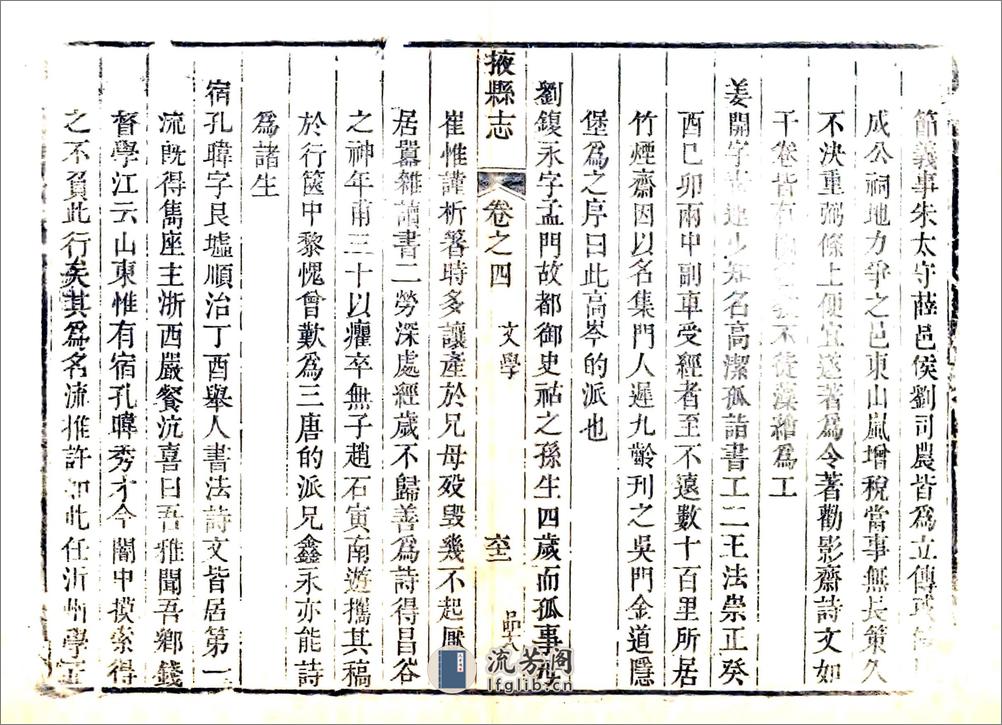 節義事朱太守薛邑侯劉司農皆爲立傳
成公祠地力爭之邑東山嵐增稅當事無長策久
不決重弼條上便宜遂著爲令著勸影齋詩文如
干卷皆有不徒藻繪爲工
姜開字少知名高潔孤詣書工二王法崇正癸
酉巳卯兩中副車受經者至不遠數十百里所居
竹煙齋因以名集門人遲九齡刊之吳門金道隱
堡爲之序曰此高岑的派也
劉鍑永字孟門故都御史祜之孫生四歲而孤事
掖縣志 卷之四 文學
崔惟謹析箸時多讓產於兄母歿毀幾不起厭
居囂雜讀書二勞深處經歲不歸善爲詩得昌谷
之神年甫三十以癯卒無子趙石寅南遊攜其稿
於行篋中黎愧曾歎爲三唐的派兄鑫永亦能詩
爲諸生
宿孔暐字艮墟順治丁酉舉人書法詩文皆居第一
流旣得雋座主浙西嚴餐沆喜曰吾雅聞吾鄉錢
督學江云山東惟有宿孔暐秀才今闇中摸索得
之不負此行矣其爲名流推許如此任沂州學正
流芳閣
lfglib.cn